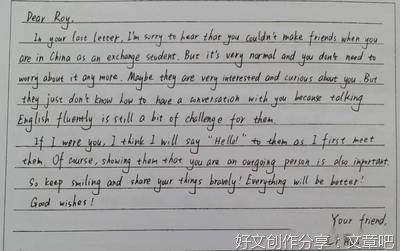 Dear Roy,
In your last letter, I'm sorry to hear that you couldn't make friends when you
are in China as an exchange student. But it's very normal and you don't need to
worry about it any more. Maybe they are very interested and curious about you. But
they just don't know how to have a conversation with you because talking
English fluently is still a bit of challenge for them.
If I were you, I think I will say "Hello!" to them as I first meet
them. Of course, showing them that you are an outgoing person is also important.
So keep smiling and share your things bravely! Everything will be better!
Good wishes!
Your friend,
好文创作分享：文章吧